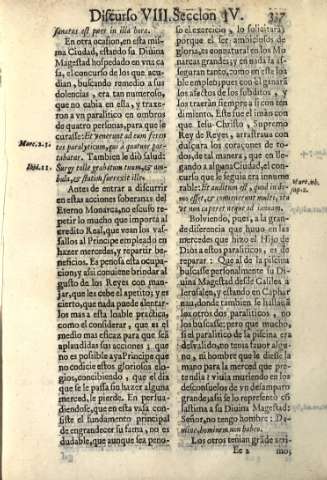 Discurso VIII. Seccion IV.
sanatus est puer in illa hora.
En otra ocasion, en esta mis-
ma Ciudad, estando su Diuina
Magestad hospedado en vna ca
sa, el concurso de los que acu-
dian, buscando remedio a sus
dolencias, era tan numeroso,
que no cabia en esta, y traxe-
ron a vn paralitico en ombros
de quatro personas, para que le
curasse: Et venerunt ad eum feren
tes paralyticum, qui à quatuor por-
tabatur. Tambien le diò salud:
Surge tolle grabatum tuum, & am-
bula, & statim surrexit ille.
Marc. 2. 3.
Ibid. 11.
Antes de entrar a discurrir
en estas acciones soberanas del
Eterno Monarca, no escuso re-
petir lo mucho que importa al
credito Real, que vean los vas-
sallos al Principe empleado en
hazer mercedes, y repartir be-
neficios. Es penosa esta ocupa-
cion, y assi conuiene brindar al
gusto de los Reyes con man-
jar, que les cebe el apetito; y es
cierto, que nada puede alentar-
los mas a esta loable practica,
como el considerar, que es el
medio mas eficaz para que sea
aplaudidas sus acciones; que
no es possible aya Principe que
no codicie estos gloriosos elo-
gios, concibiendo, que el dia
que se le passa sin hazer alguna
merced, le pierde. En persua-
diendose, que en esta vasa con-
siste el fundamento principal
de engrandecer su fama, no es
dudable, que aunque sea peno-
so el exercicio, lo solicitarà,
porque el ser ambiciosos de
gloria, es connatural en los Mo
narcas grandes; y en nada la as-
seguran tanto, como en este lo
ble empleo; pues con el ganarà
los afectos de los subditos, y
los traeràn siempre a sì con ren
dimiento. Este fue el iman con
que Iesu-Christo, Supremo
Rey de Reyes, arrastraua con
dulçura los coraçones de to-
dos, de tal manera, que en lle-
gando a alguna Ciudad, el con-
curso que le seguia era innume-
rable: Et auditum est, quod in do-
mo esset, & conuenerunt multi, ita
vt non caperet neque ad ianuam.
Boluiendo, pues, a la gran-
de diferencia que huuo en las
mercedes que hizo el Hijo de
Dios a estos paraliticos, es de
reparar: Que al de la piscina
buscasse personalmente su Di-
uina Magestad desde Galilea a
Ierusalen, y estando en Caphar
naa, donde tambien se hallauã
los otros dos paraliticos, no
los buscasse; pero que mucho,
si el paralitico de la piscina de
desvalido, no tenia fauor algu-
no, ni hombre que le diesse la
mano para la merced que pre-
tendia: viuia muriendo en los
desconsuelos de vn desamparo
grande; assi se lo representò cõ
lastima a su Diuina Magestad:
Señor, no tengo hombre: Do-
mine, hominem non habeo.
Los otros tenian grãde arri-
Ee 2 mo,